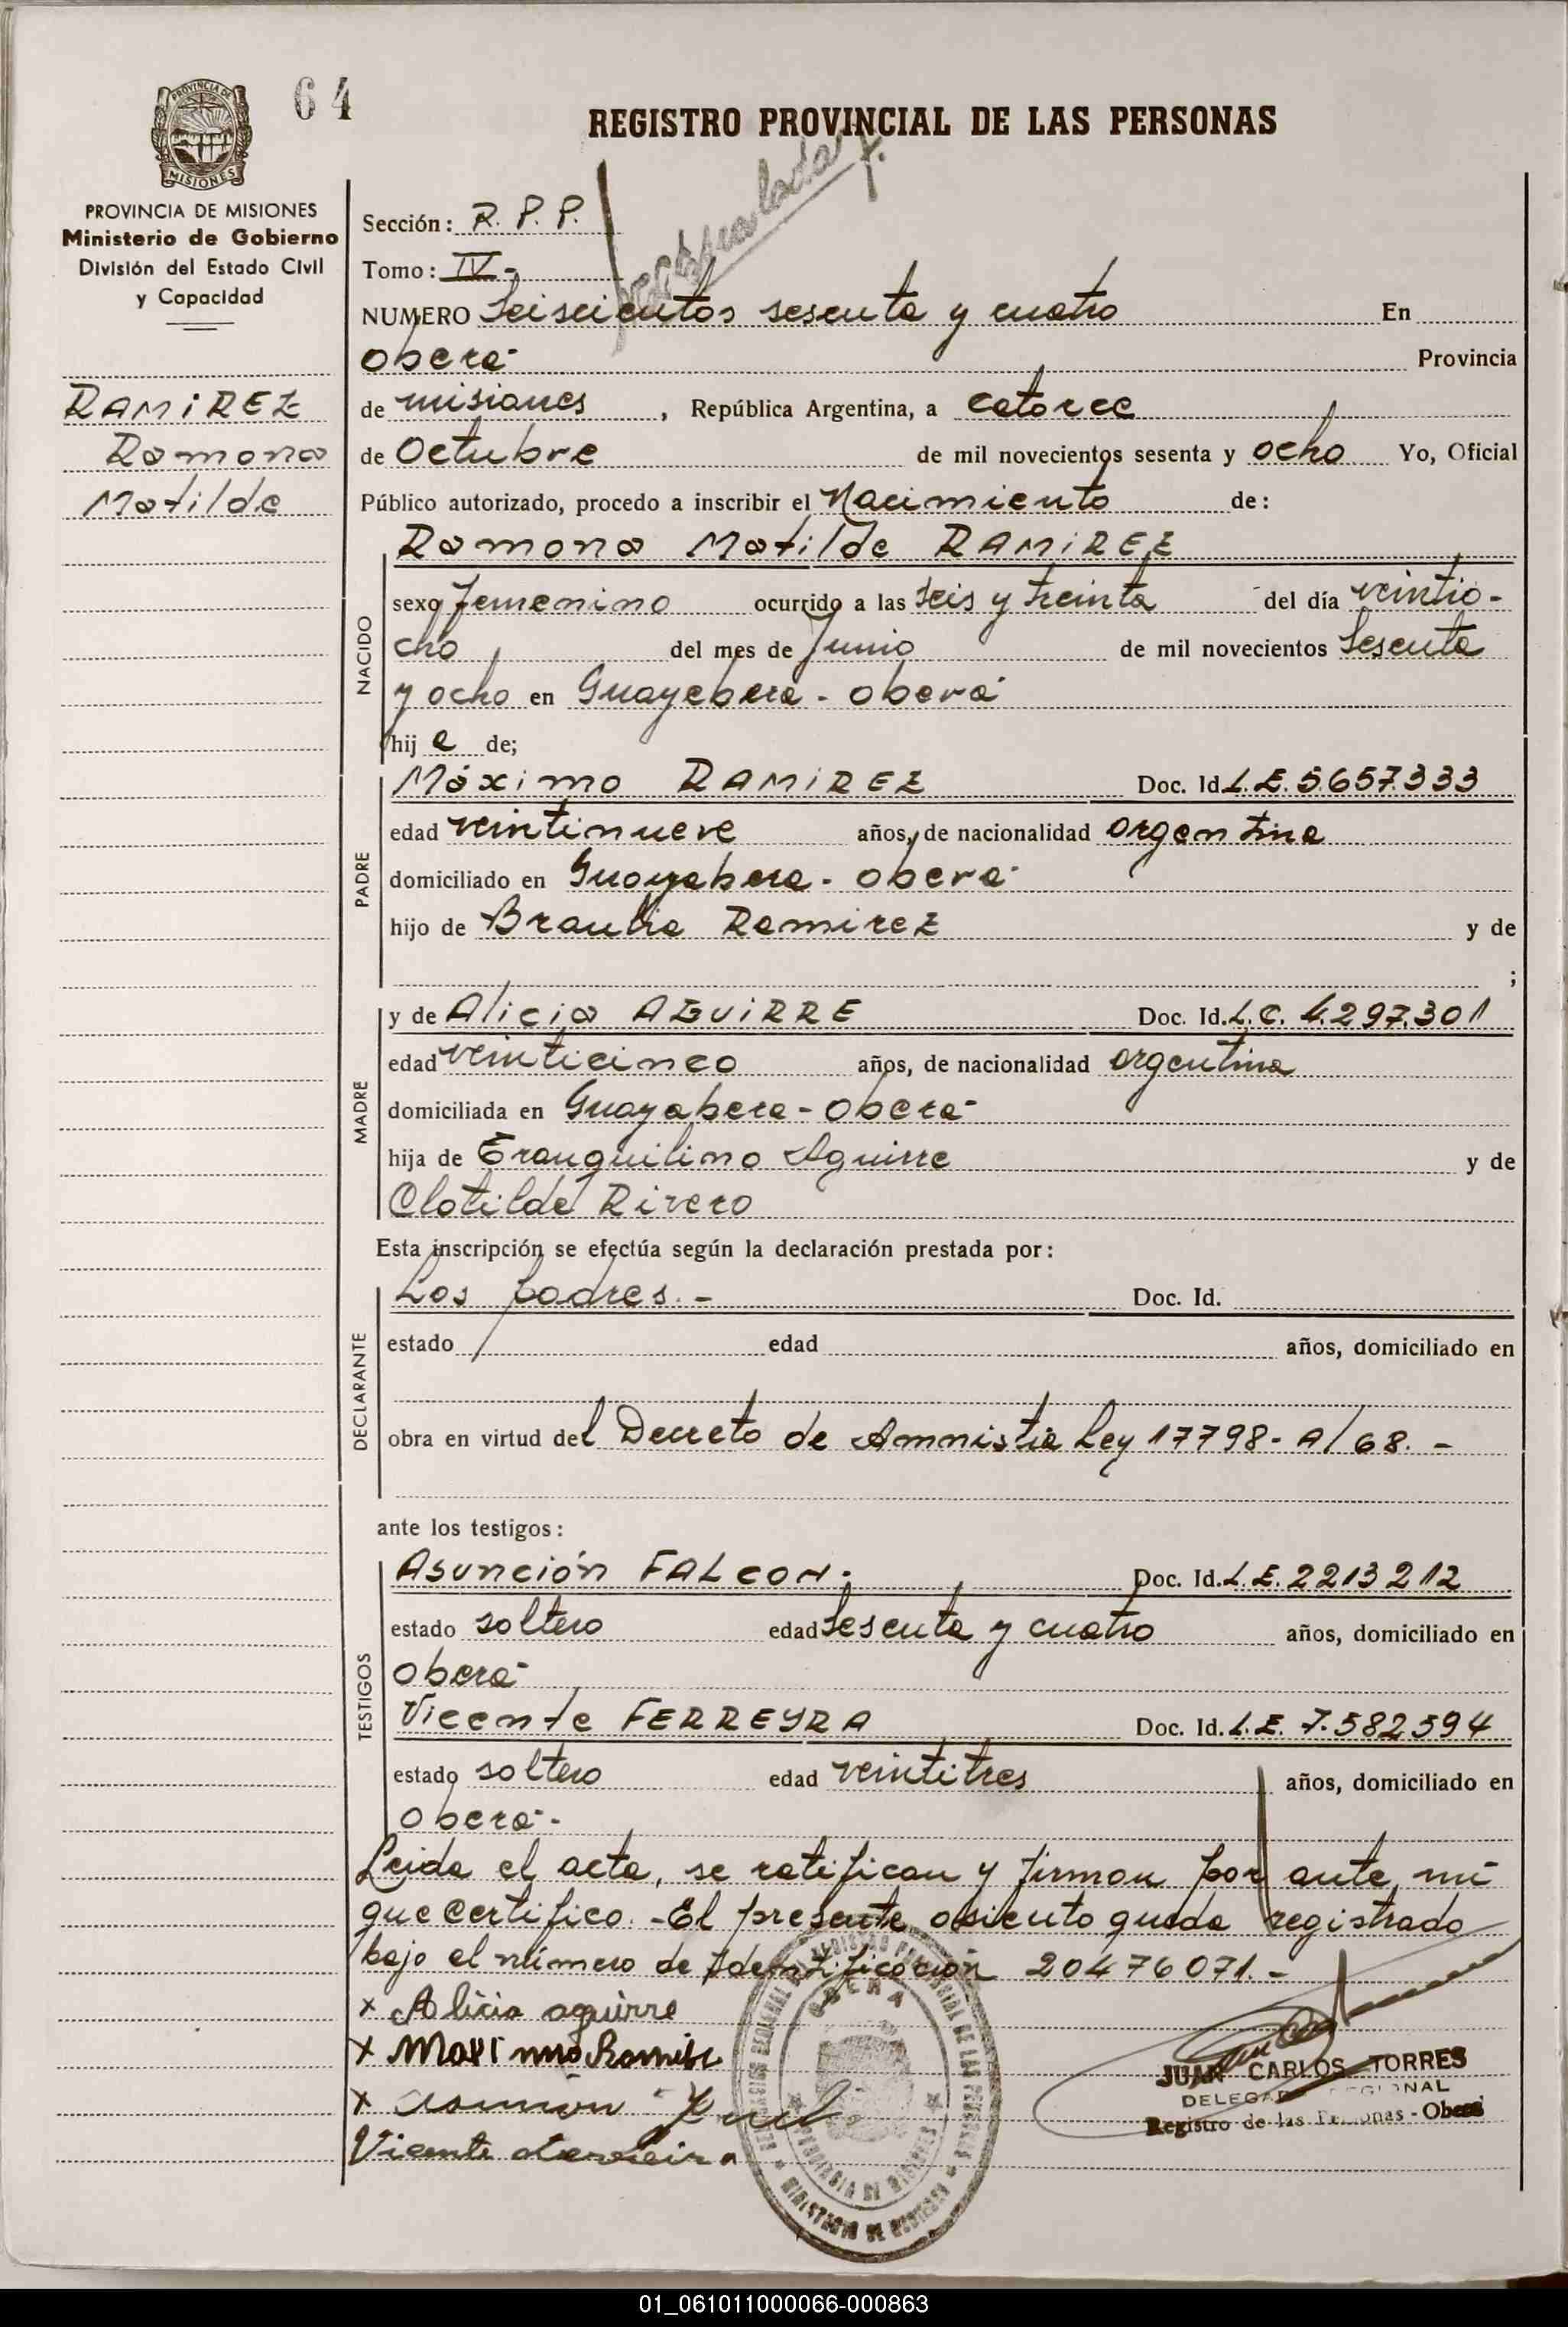 64
REGISTRO PROVINCIAL DE LAS PERSONAS
PROVINCIA DE
MISIONES
PROVINCIA DE MISIONES
Ministerio de Gobierno
División del Estado Civil
y Capacidad
RAMIREZ
Ramona
Matilde
Sección: R. P. P.
Tomo: IV-
NUMERO Seiscientos sesenta y cuatro En
Oberá Provincia
de Misiones, República Argentina, a catorce
de Octubre de mil novecientos sesenta y ocho Yo, Oficial
Público autorizado, procedo a inscribir el Nacimiento de:
Ramona Matilde RAMIREZ
NACIDO
sexo femenino ocurrido a las seis y treinta del día veintio-
cho del mes de Junio de mil novecientos sesenta
y ocho en Guayabera - Oberá
hija de;
PADRE
Máximo RAMIREZ Doc. Id. L.E. 5.657.333
edad veintinueve años, de nacionalidad argentina
domiciliado en Guayabera - Oberá
hijo de Braulia Ramirez y de
;
MADRE
y de Alicia AGUIRRE Doc. Id. L.C. 4.297.301
edad veinticinco años, de nacionalidad argentina
domiciliada en Guayabera - Oberá
hija de Tranquilino Aguirre y de
Clotilde Rivero
Esta inscripción se efectúa según la declaración prestada por:
DECLARANTE
Los padres.- Doc. Id.
estado edad años, domiciliado en
obra en virtud del Decreto de Amnistia Ley 17798- A/68.-
ante los testigos:
TESTIGOS
Asunción FALCON. Doc. Id. L.E. 2213212
estado soltero edad sesenta y cuatro años, domiciliado en
Oberá
Vicente FERREYRA Doc. Id. L.E. 7.582594
estado soltero edad veintitres años, domiciliado en
Oberá.-
Leida el acta, se ratifican y firman por ante mi
que certifico.-El presente asiento queda registrado
bajo el número de Identificación 20476071.-
x Alicia aguirre
x Maximo Ramire
x
Vicente
OBERA
PROVINCIA DE MISIONES
MINISTERIO DE GOBIERNO
JUAN CARLOS TORRES
DELEGADO REGIONAL
Registro de las Personas - Oberá
01_061011000066-000863